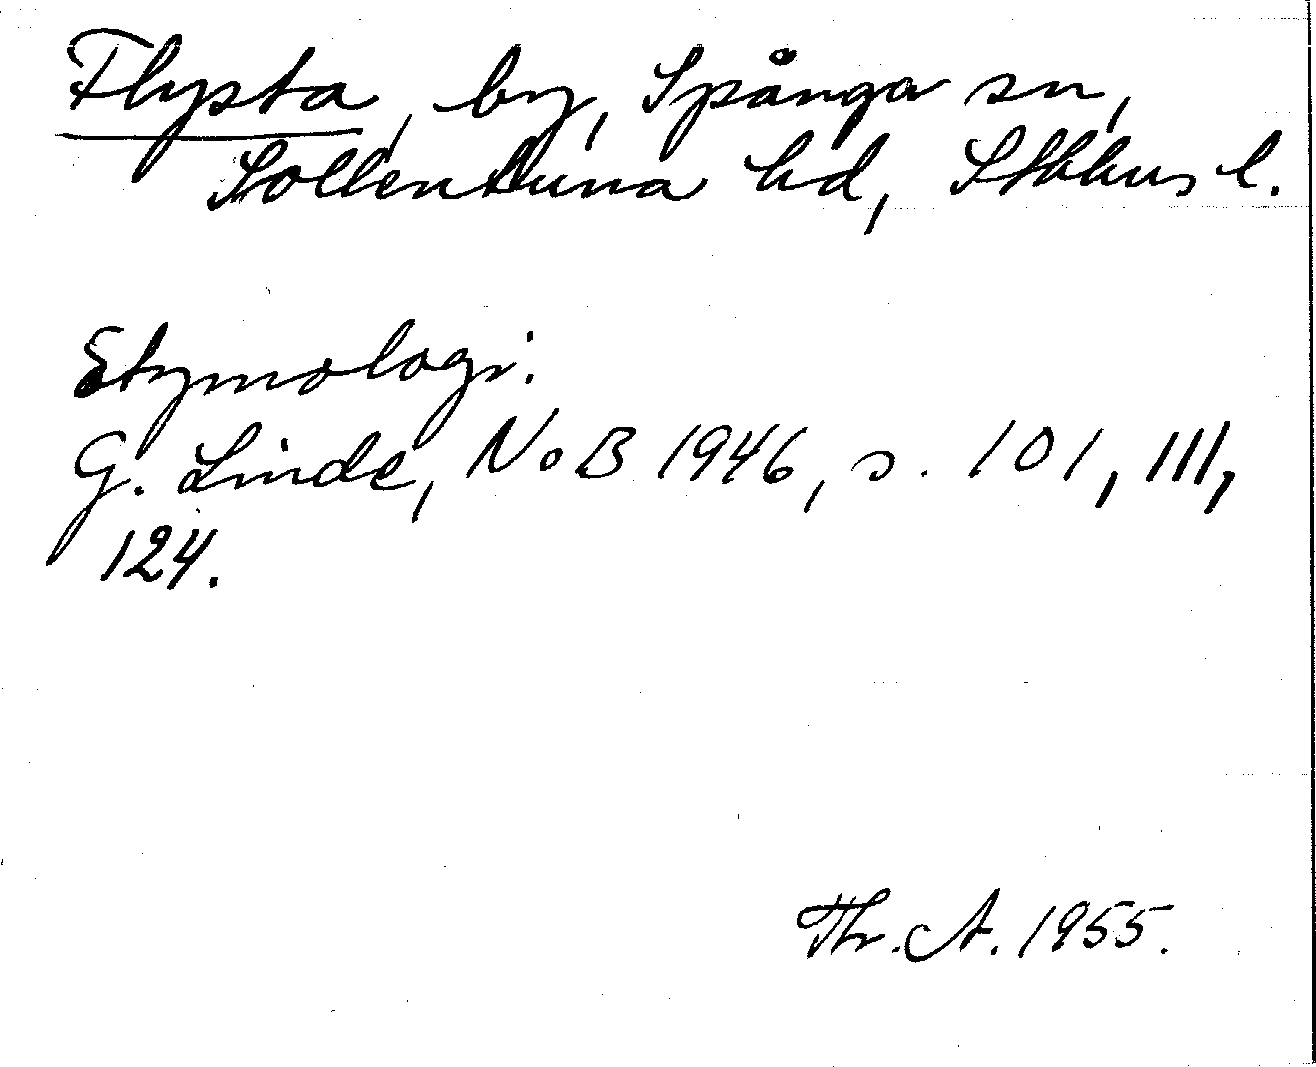 Flysta, by, Spånga sn,
Sollentuna hd, Sthlms l.
Etymologi:
G. Linde, NoB 1946, s. 101, 111,
124.
Thr. A. 1955.